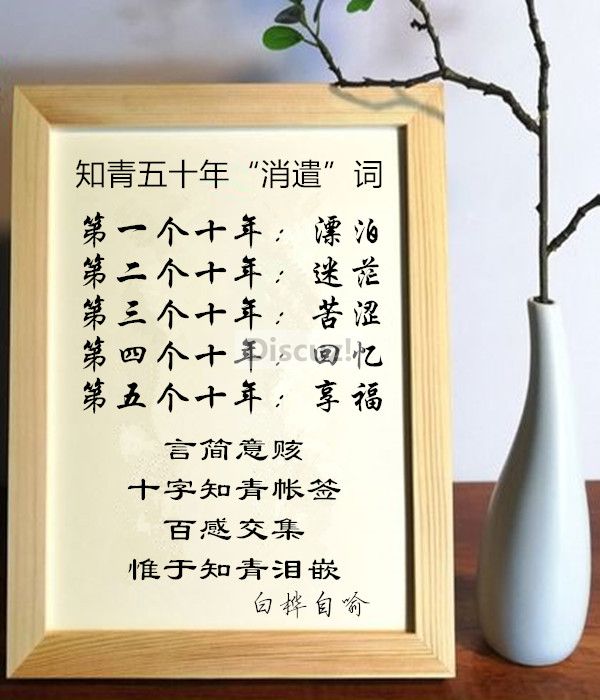 知青五十年“消遣”词
第一个十年：漂泊
第二个十年：迷茫
第三个十年：苦涩
第四个十年：回忆
第五个十年：享福
Discuz!
言简意赅
十字知青帐签
百感交集
惟于知青泪嵌
白桦自喻